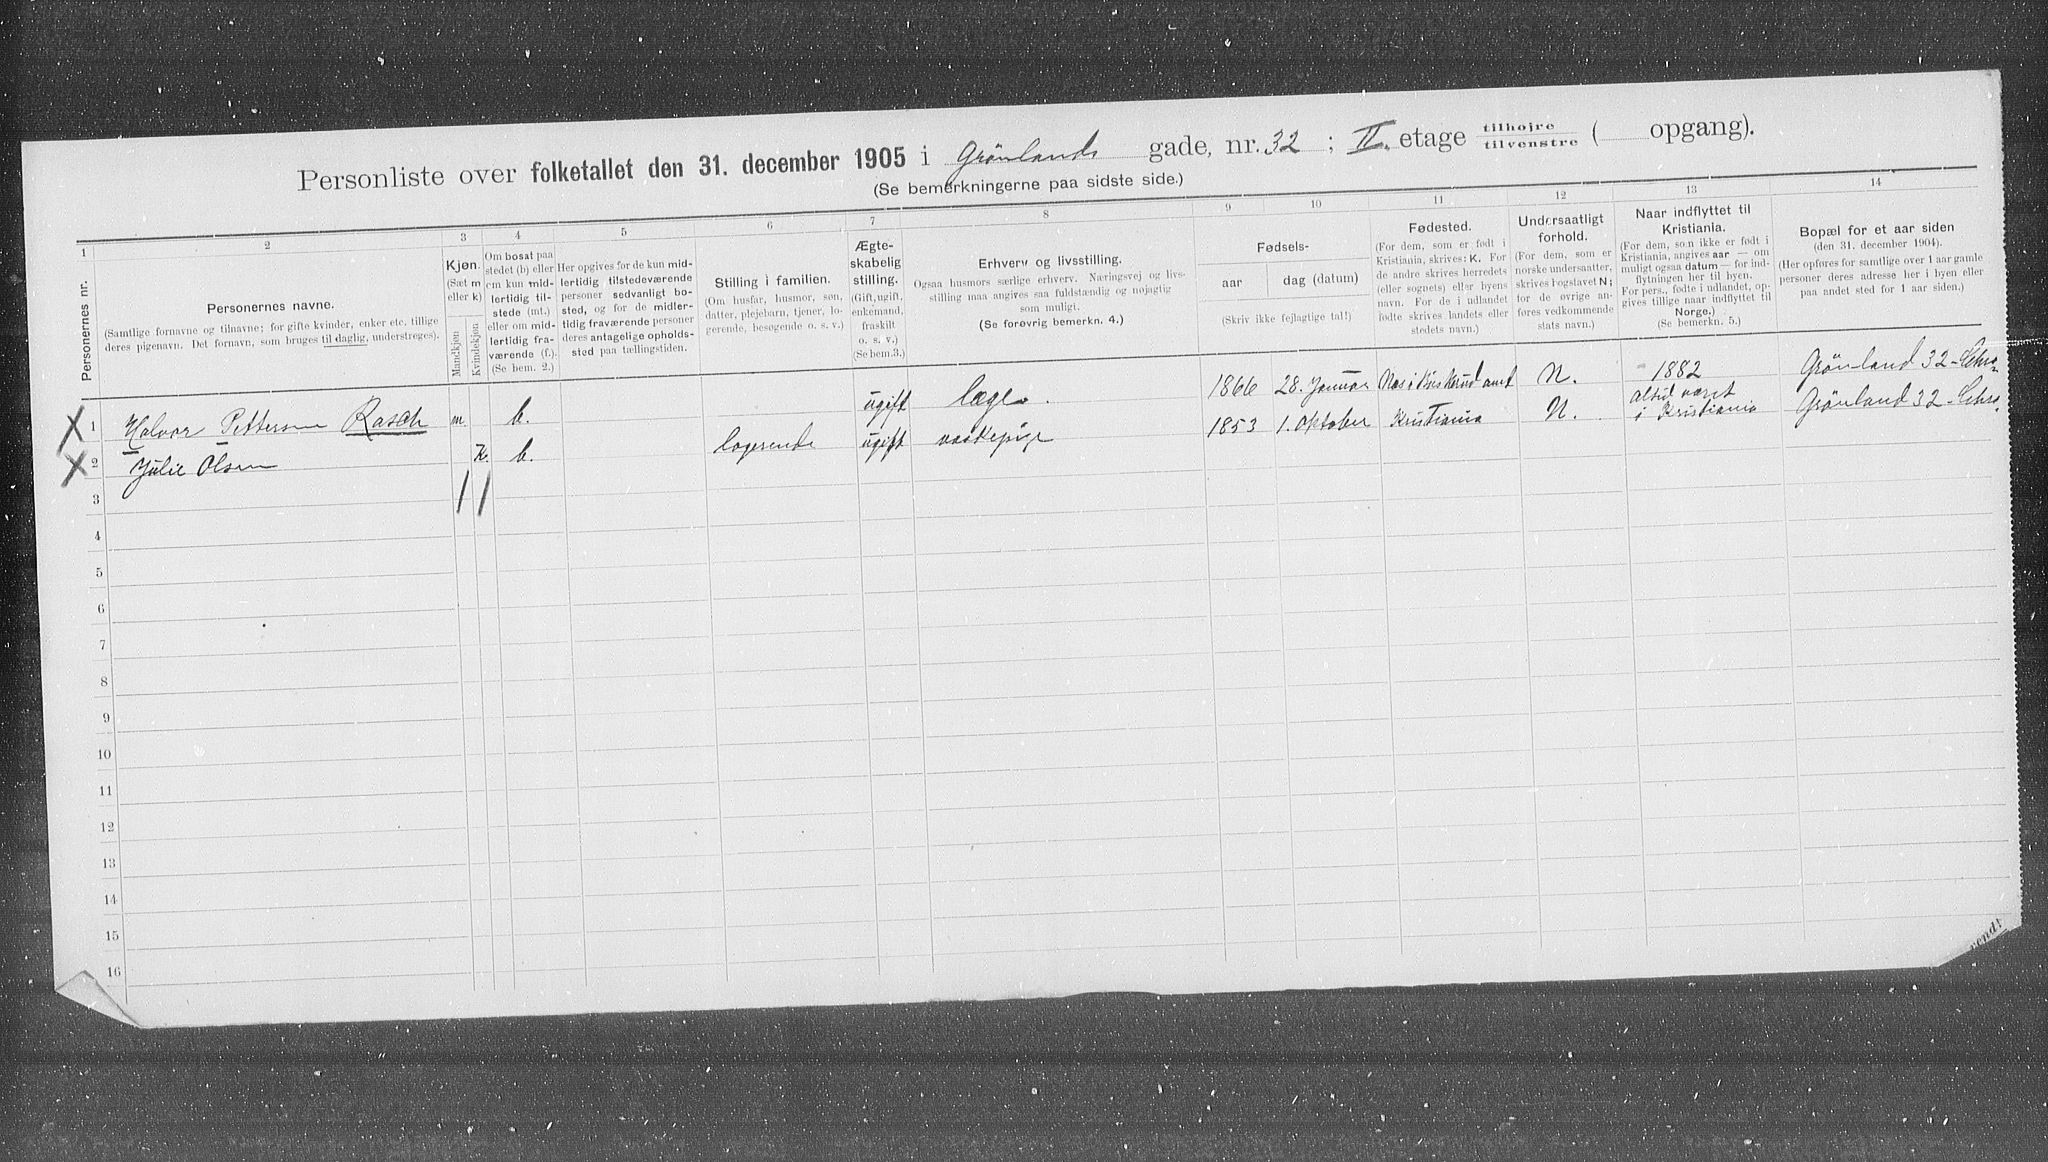 Personliste over folketallet den 31. december 1905 i Grönlands gade, nr. 32 ; II. etage tilhøjre tilvenstre ( opgang).
(Se bemerkningerne paa sidste side.)
1 2 3 4 5 6 7 8 9 10 11 12 13 14
Personernes nr.
Personernes navne.
(Samtlige fornavne og tilnavne; for gifte kvinder, enker etc. tillige
deres pigenavn. Det fornavn, som bruges til daglig, understreges).
Kjøn.
(Sæt m
eller k)
Mandkjøn
Kvindekjøn
Om bosat paa
stedet (b) eller
om kun mid-
lertidig til-
stede (mt.)
eller om mid-
lertidig fra-
værende (f.).
(Se bem. 2.)
Her opgives for de kun mid-
lertidig tilstedeværende
personer sedvanligt bo-
sted, og for de midler-
tidig fraværende personer
deres antagelige opholds-
sted paa tællingstiden.
Stilling i familien.
(Om husfar, husmor, søn,
datter, plejebarn, tjener, lo-
gerende, besøgende o. s. v.)
Ægte-
skabelig
stilling.
(Gift, ugift,
enkemand,
fraskilt
o. s. v.)
(Se bem.3.)
Erhverv og livsstilling.
Ogsaa husmors særlige erhverv. Næringsvej og livs-
stilling maa angives saa fuldstændig og nøjagtig
som muligt.
(Se forøvrig bemerkn. 4.)
Fødsels-
aar dag (datum)
(Skriv ikke fejlagtige tal!)
Fødested.
(For dem, som er født i
Kristiania, skrives: K. For
de andre skrives herredets
(eller sognets) eller byens
navn. For de i udlandet
fødte skrives landets eller
stedets navn.)
Undersaatligt
forhold.
(For dem, som er
norske undersaatter,
skrives bogstavet N;
for de øvrige an-
føres vedkommende
stats navn.)
Naar indflyttet til
Kristiania.
(For dem, som ikke er født i
Kristiania, angives aar — om
muligt ogsaa datum — for ind-
flytningen her til byen.
For pers., født i udlandet, op-
gives tillige naar indflyttet til
Norge.)
(Se bemerkn. 5.)
Bopæl for et aar siden
(den 31. december 1904).
(Her opføres for samtlige over 1 aar gamle
personer deres adresse her i byen eller
paa andet sted for 1 aar siden.)
X 1 Halvor Pettersen Rasch m b. ugift læge. 1866 28. Januar Næs i Buskerud amt N. 1882 Grönland 32 - Schra
X 2 Julie Olsen K. b. logerende ugift vaskepige 1853 1. Oktober Kristiania N. altid været i Kristiania Grönland 32 - Schra
3
4
5
6
7
8
9
10
11
12
13
14
15
16
vendt